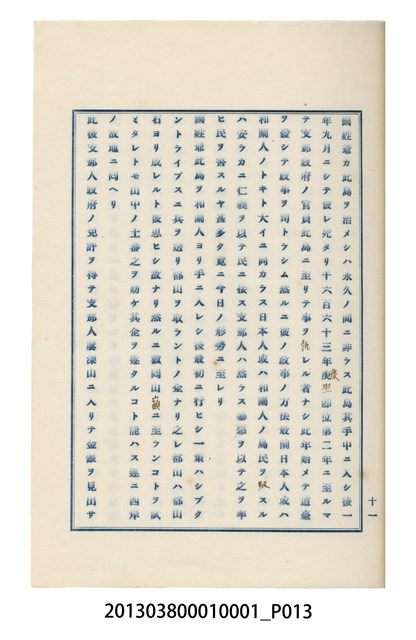 國姓爺カ此島ヲ治メシハ永久ノ間ニ非ラス此島其手中ニ入シ後一
年九月ニシテ彼レ死タリ千六百六十三年康熙即位第二年ニ至ルマ
テ支那政府ノ官員此島ニ至リテ事ヲ執レル者ナシ此年始メテ道臺
ヲ發シテ政事ヲ司トラシム然ルニ彼ノ政事ノ方法最前日本人或ハ
和蘭人ノトキト大イニ同カラス日本人或ハ和蘭人ノ島民ヲ馭スル
ハ安ラカニ仁義ヲ以テ民ニ接ス支那人ハ然ラス暴惡ヲ以テ之ヲ率
ヒ民ヲ害スルヤ甚多ク竟ニ今日ノ形勢ニ至レリ
國姓爺此島ヲ和蘭人ヨリ手ニ入レシ後最初ニ行ヒシ一策ハシプク
ントライブスニ兵ヲ送リ都山ヲ取ラントノ企ナリ之レ都山ハ都山
石ヨリ成レルト彼思ヒシ故ナリ然ルニ敵同山巓ニ至ランコトヲ試
ミタレトモ山中ノ土番之ヲ妨ケ其企ヲ遂タルコト能ハス遂ニ西岸
ノ故地ニ回ヘリ
此後支那人政府ノ免許ヲ得テ支那人屢深山ニ入リテ金銀ヲ見出サ
十一
201303800010001_P013